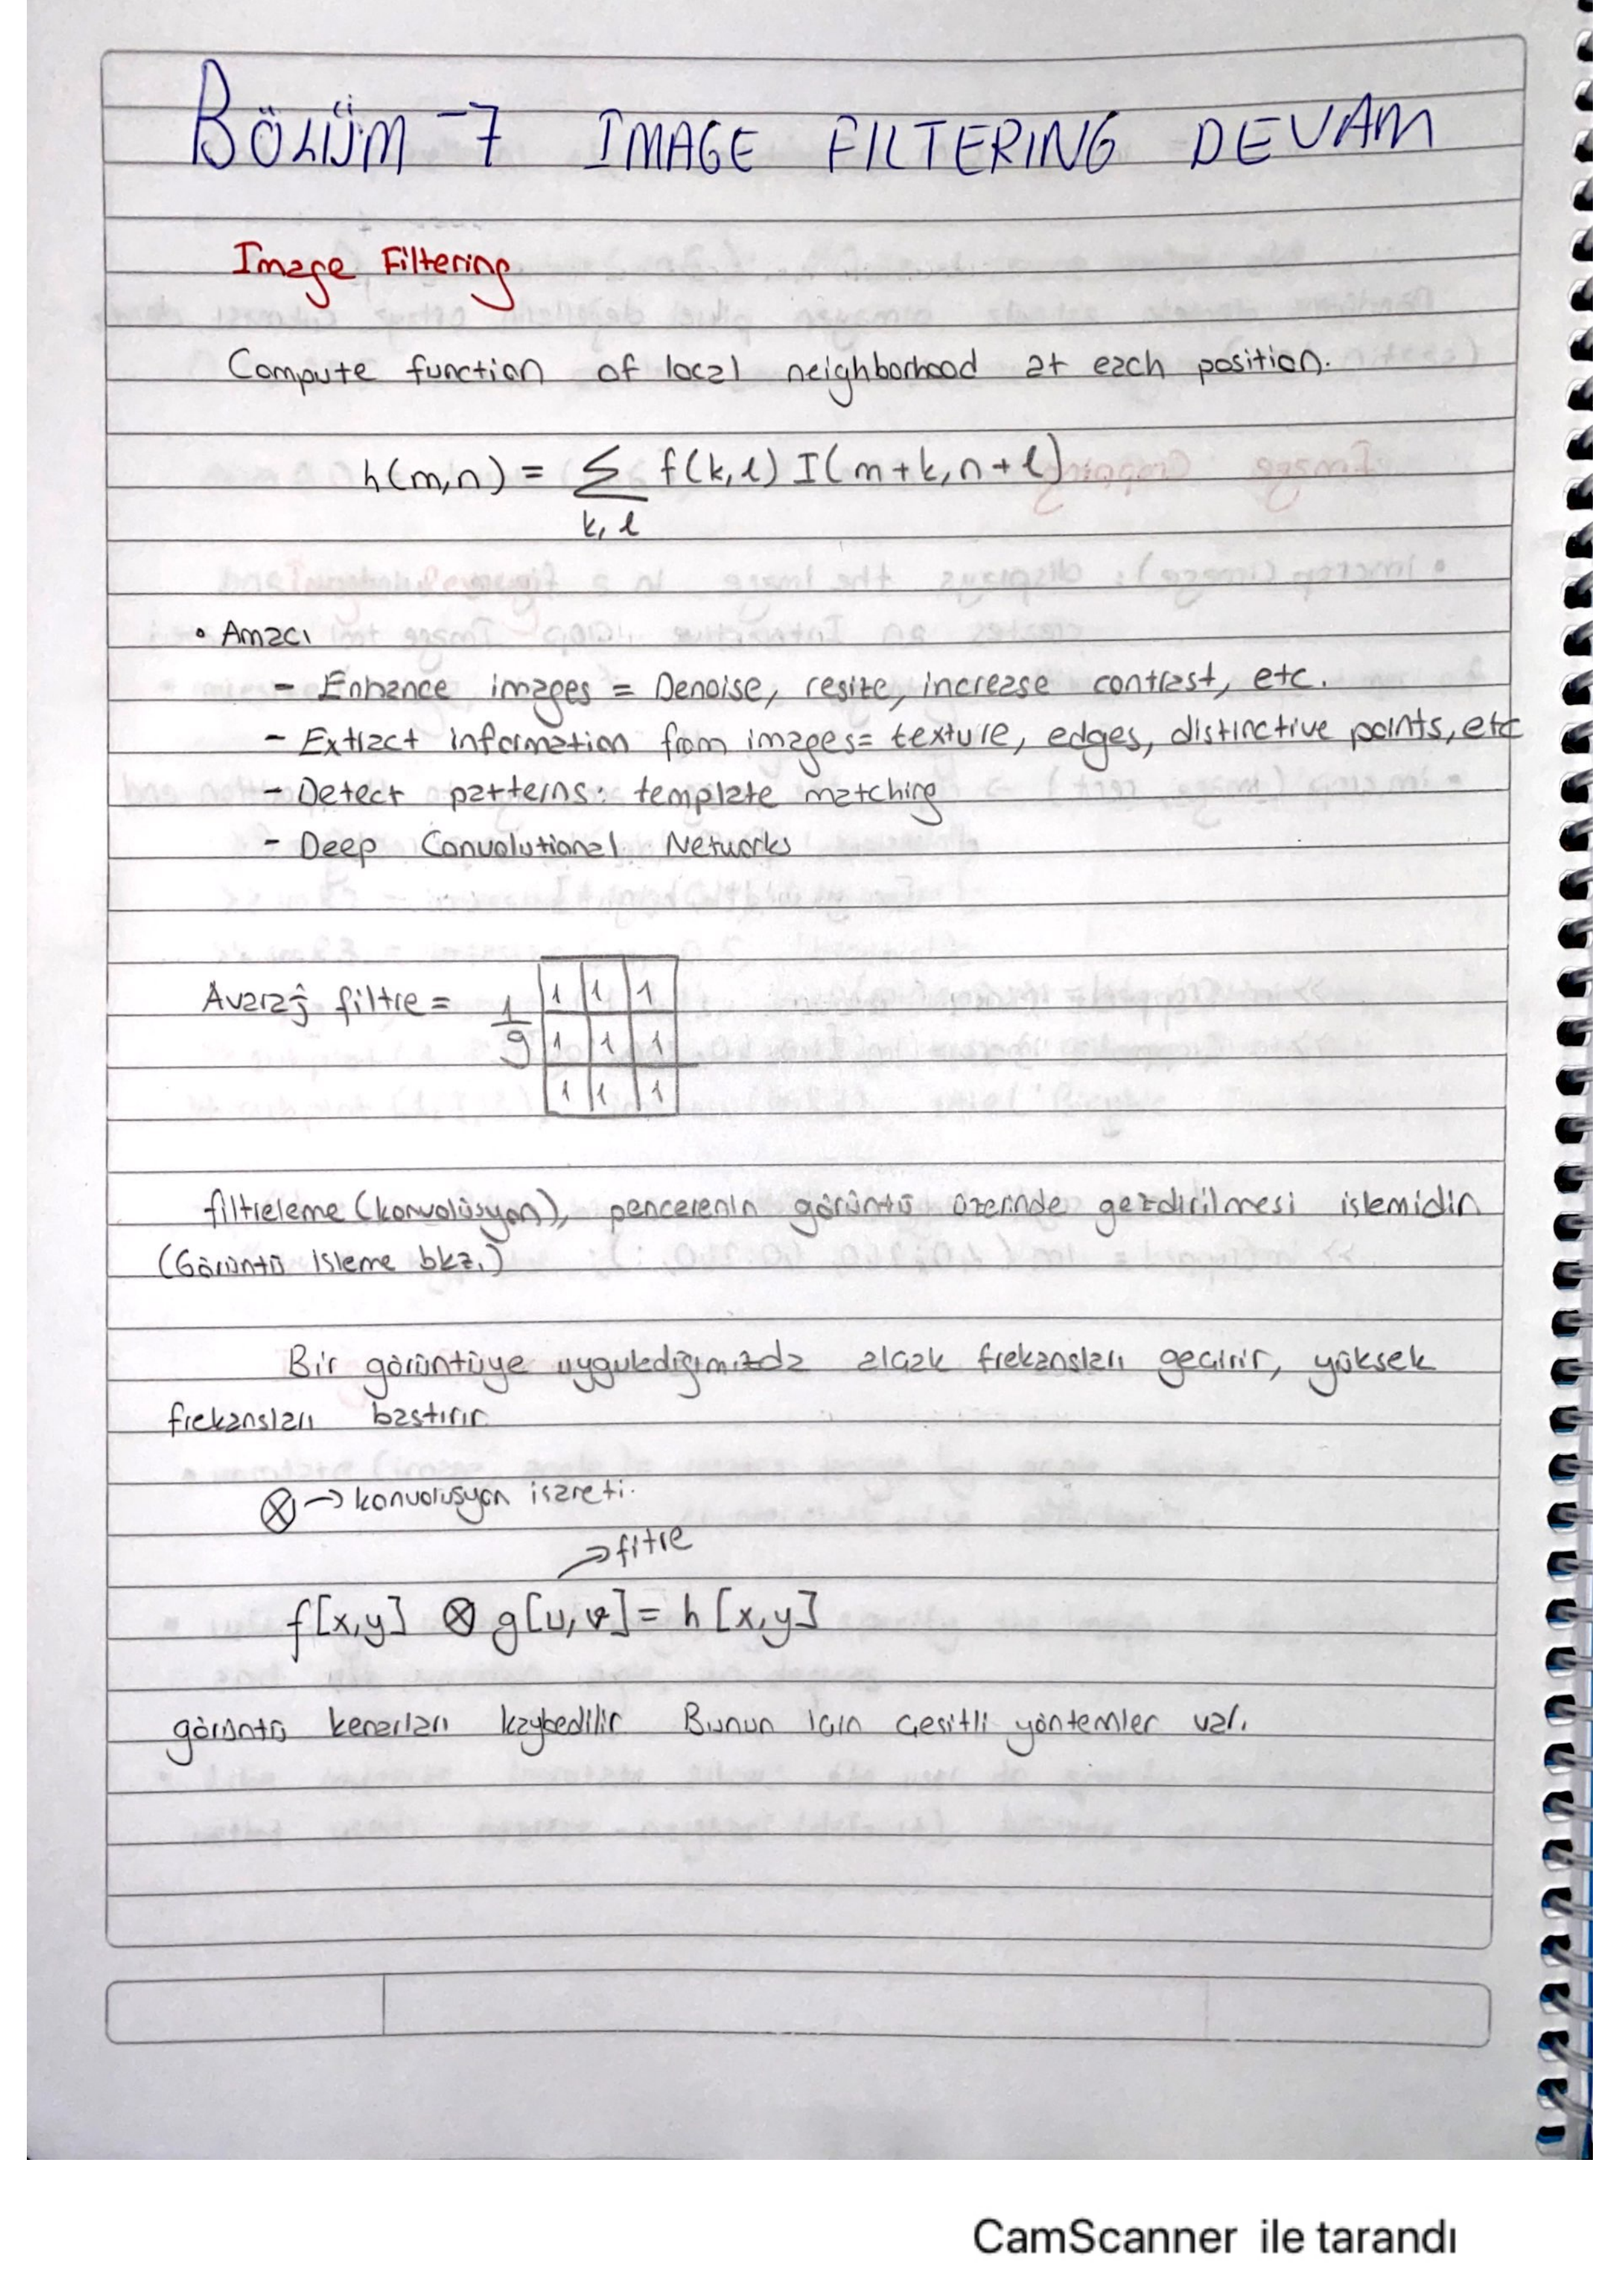 BÖLÜM -7 IMAGE FILTERING DEVAM
Image Filtering
Compute function of local neighborhood at each position.
h(m,n) = Σ f(k,l) I(m+k,n+l)
k, l
• Amacı
- Enhance images = Denoise, resize, increase contrast, etc.
- Extract information from images= texture, edges, distinctive points, etc
- Detect patterns: template matching
- Deep Convolutional Networks
Averaj filtre = 1/9
1 1 1
1 1 1
1 1 1
filtreleme (konvolüsyon), pencerenin görüntü üzerinde gezdirilmesi islemidir
(Görüntü isleme bkz.)
Bir görüntüye uyguladığımızda alçak frekansları geçirir, yüksek
frekansları bastırır
⊗ → konvolusyon isareti.
→ fitre
f[x,y] ⊗ g[u,v] = h[x,y]
görüntü kenarları kaybedilir Bunun için çesitli yöntemler var.
CamScanner ile tarandı